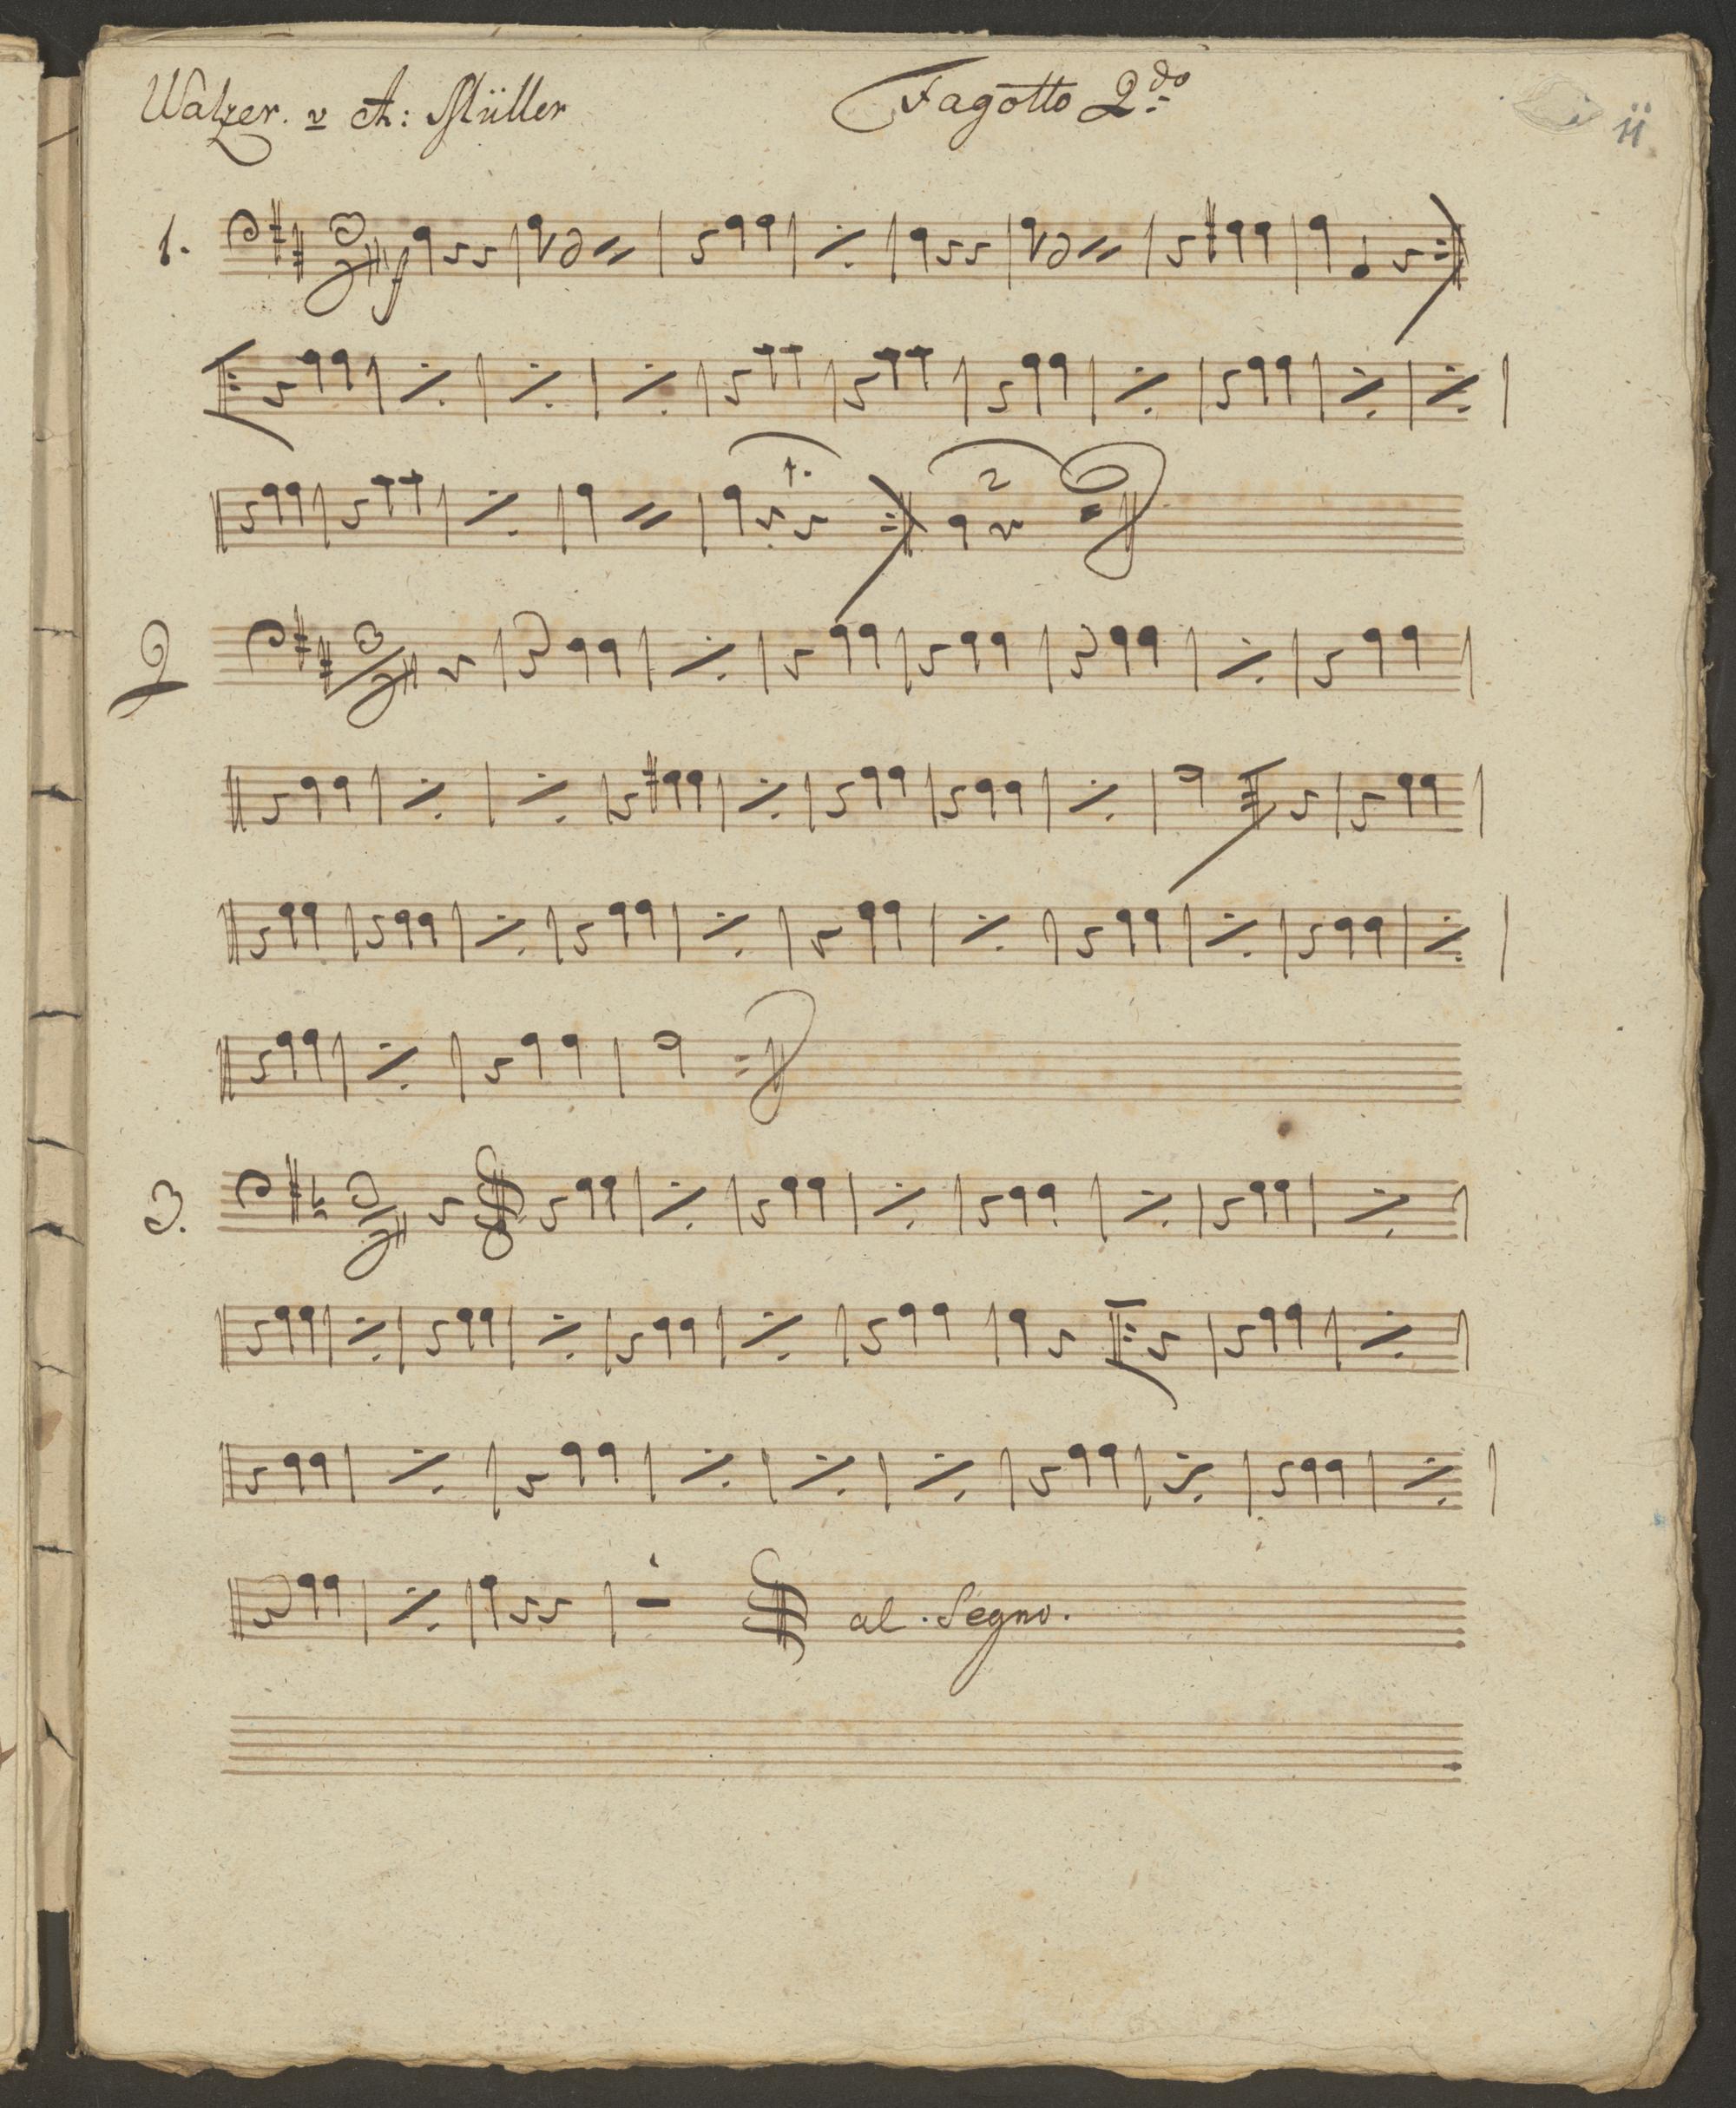 Walzer. v A: Müller
Fagotto 2do
11
1.
f
1.
2
2
3.
al Segno.